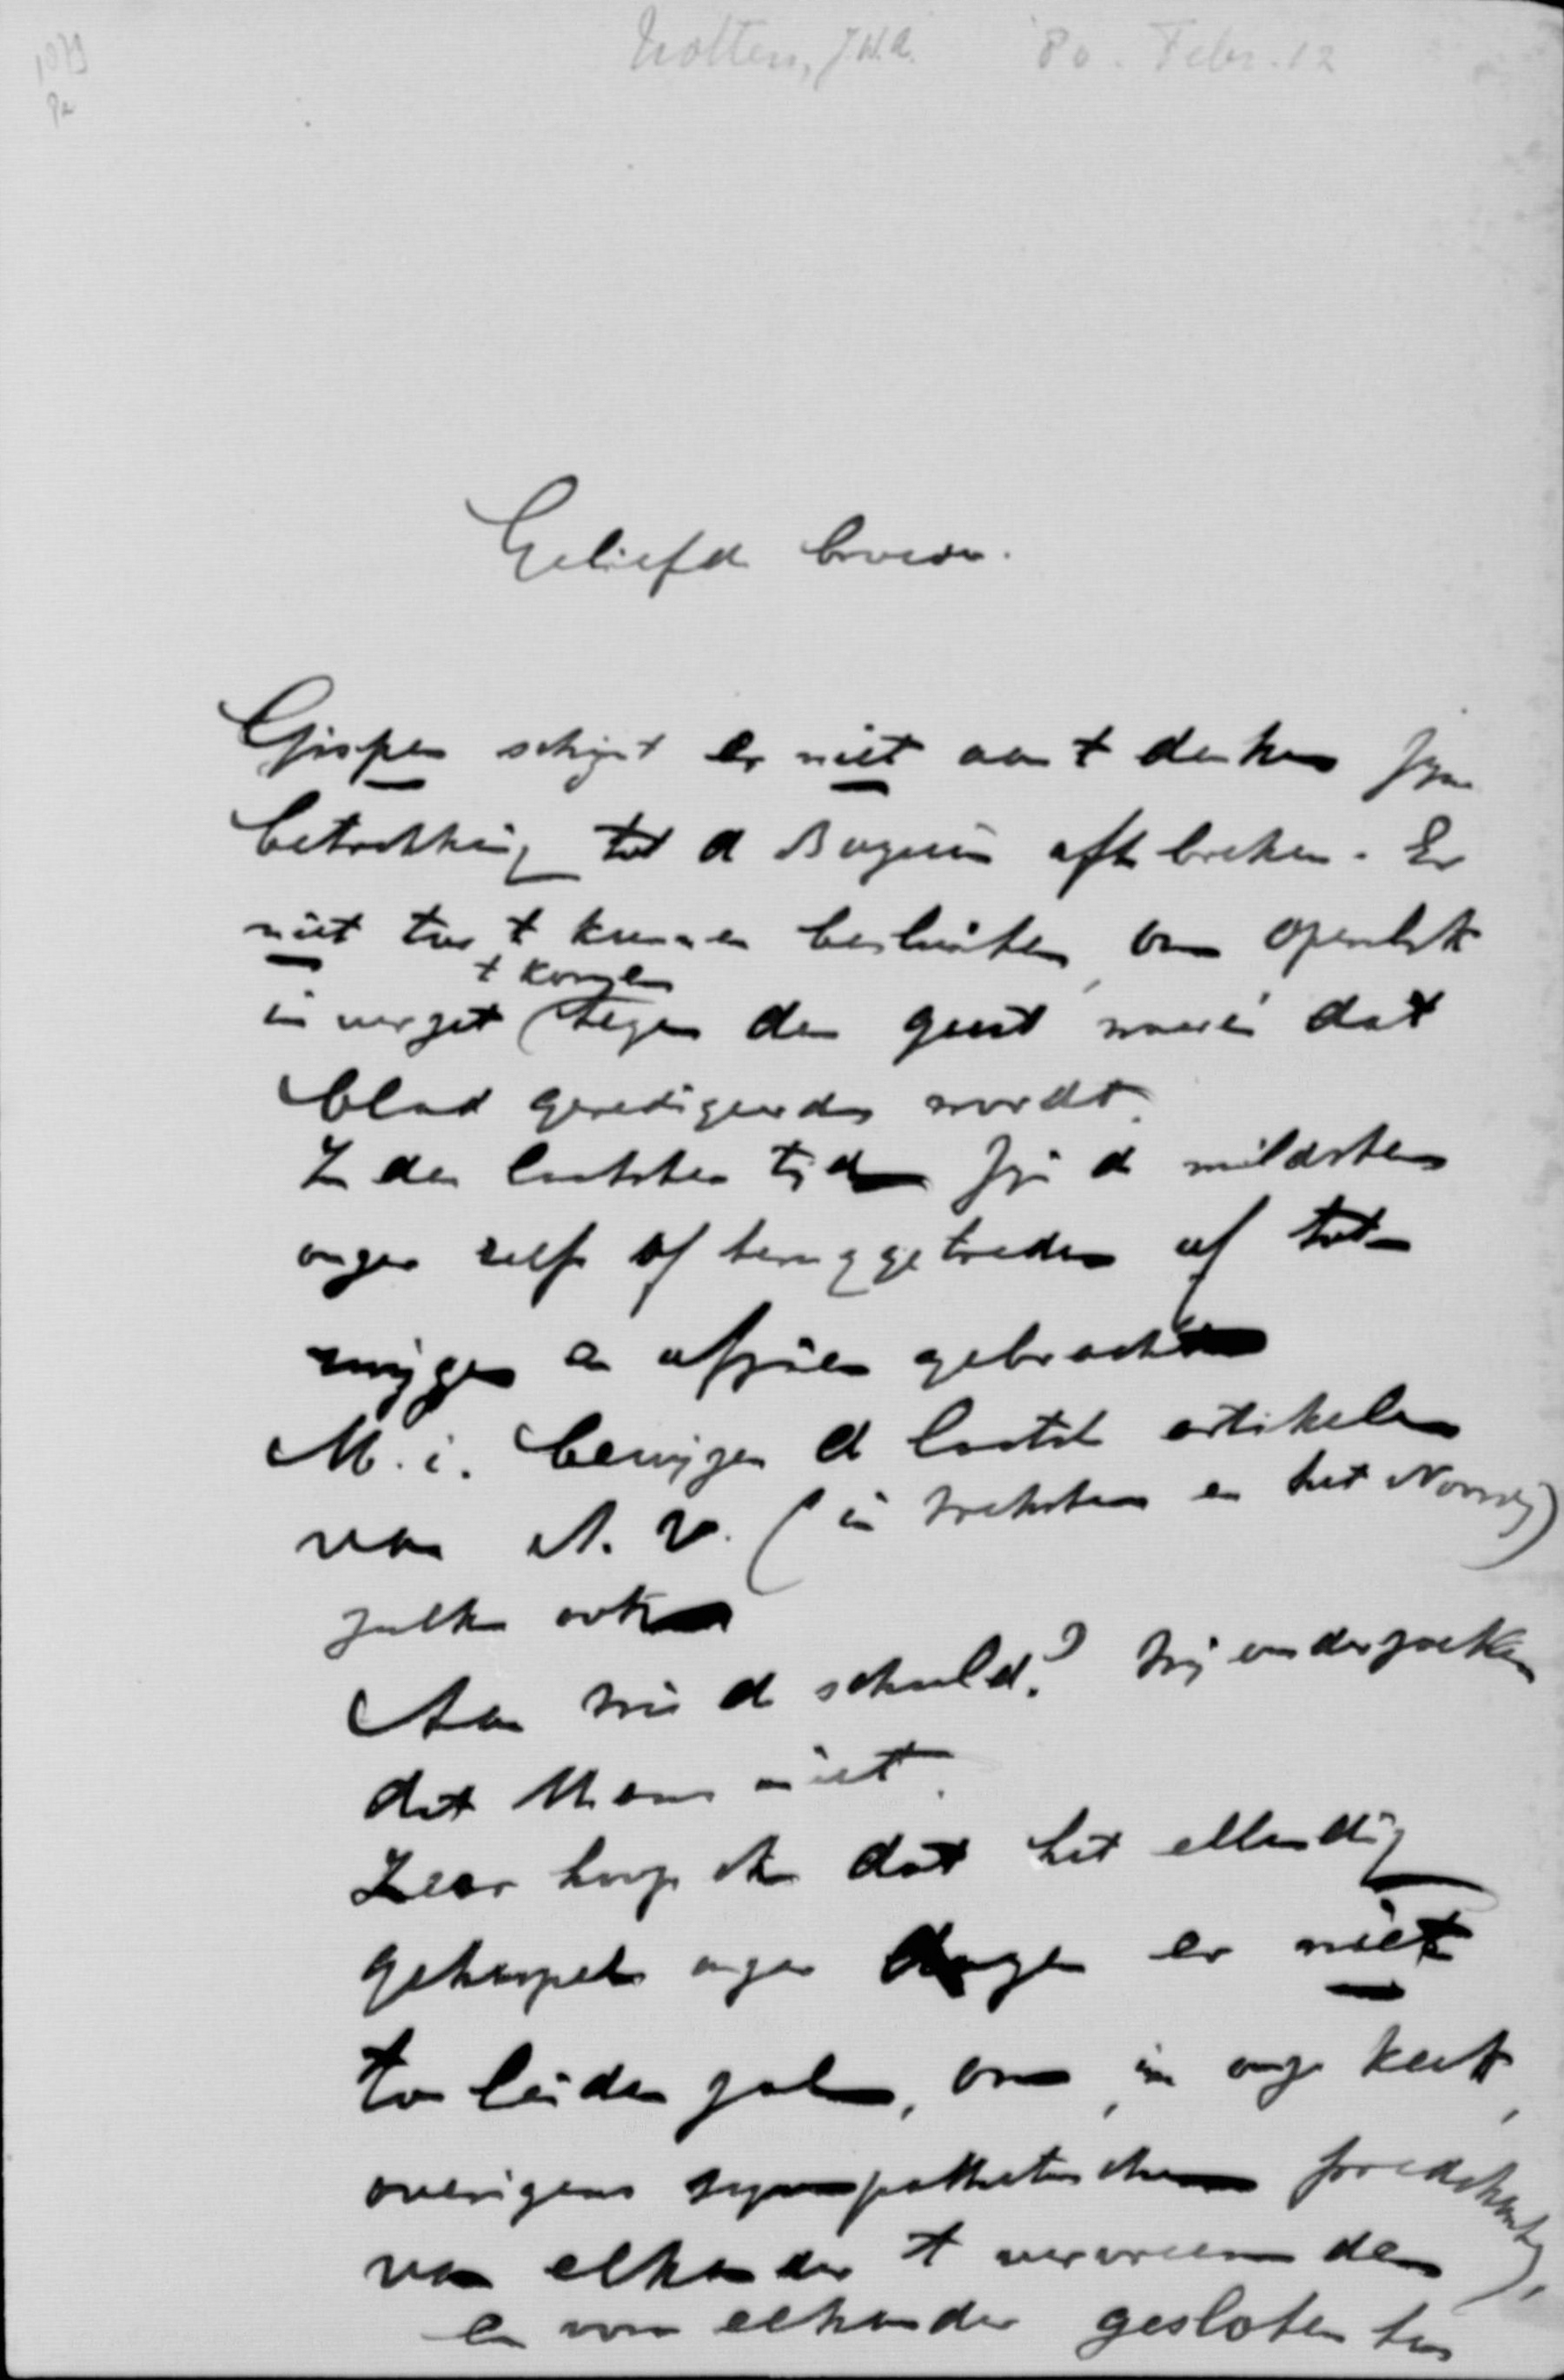 1079
Pa
Notten, J.W.A. '80. Febr. 12
Geliefde broeder.
Gispen schijnt er niet aan te denken zijn
betrekking tot de Bazuin af te breken. Er
niet toe te kunnen besluiten, om openlijk
te komen
in verzet tegen den geest waarin dat
blad geredigeerd wordt.
In den laatsten tijd zijn de mildsten
onzer zelf of teruggetreden of tot
zwijgen en afzien gebracht
M. i. bewijzen de laatste artikelen
van N. (in Wekstem en het Noorden)
zulks ook
Aan wie de schuld? Wij onderzoeken
dat thans niet.
Zeer hoop ik dat het ellendig
gehaspel onzer dagen er niet
toe leiden zal, om, in onze kerk,
overigens sympathetische
van elkander te vervreemden
en van elkander gesloten te